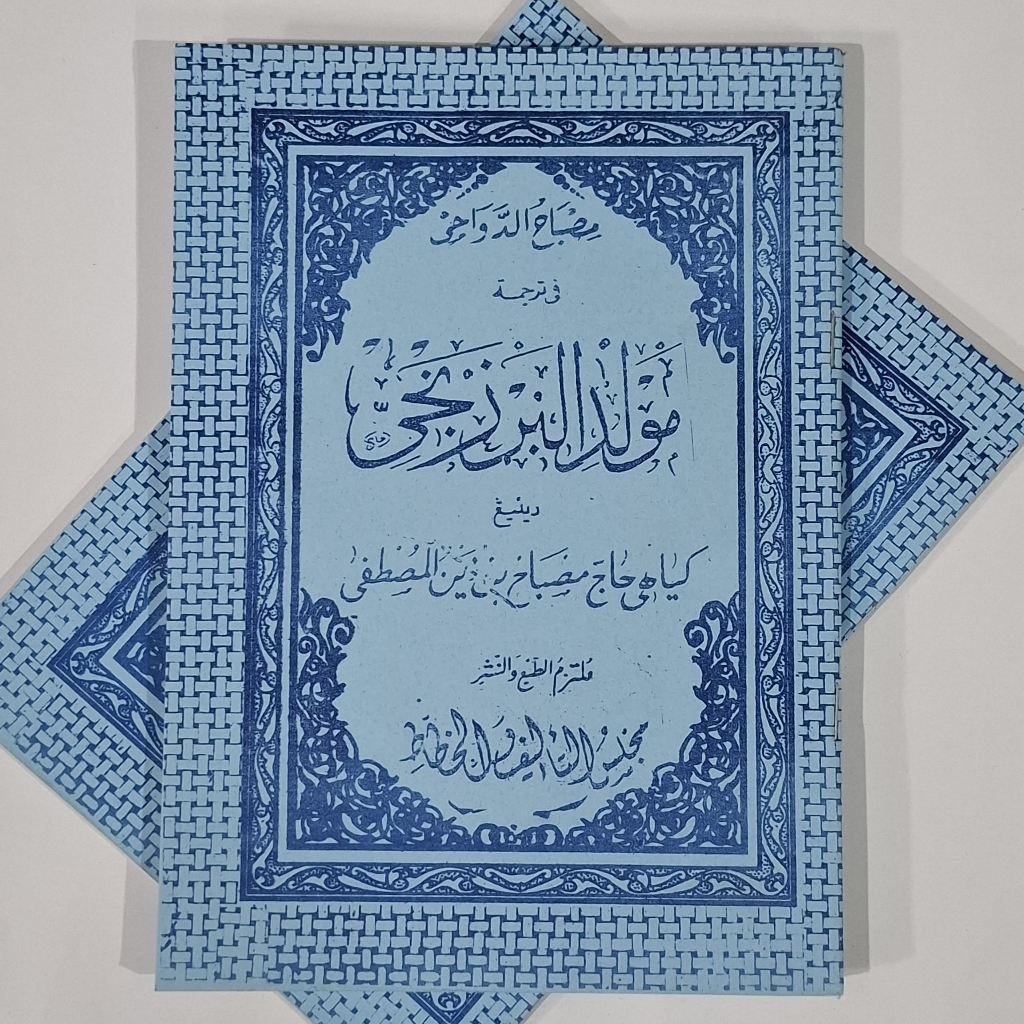 مِصْبَاحُ الدَّوَاجِيْ
فى ترجمة
مَوْلِدُ الْبَرْزَنْجِيِّ
دينيڠ
كياهي حاج مصباح بن زين المصطفى
مُلتزمُ الطّبْعِ وَالنّشْرِ
مجلس التأليف والخطاط